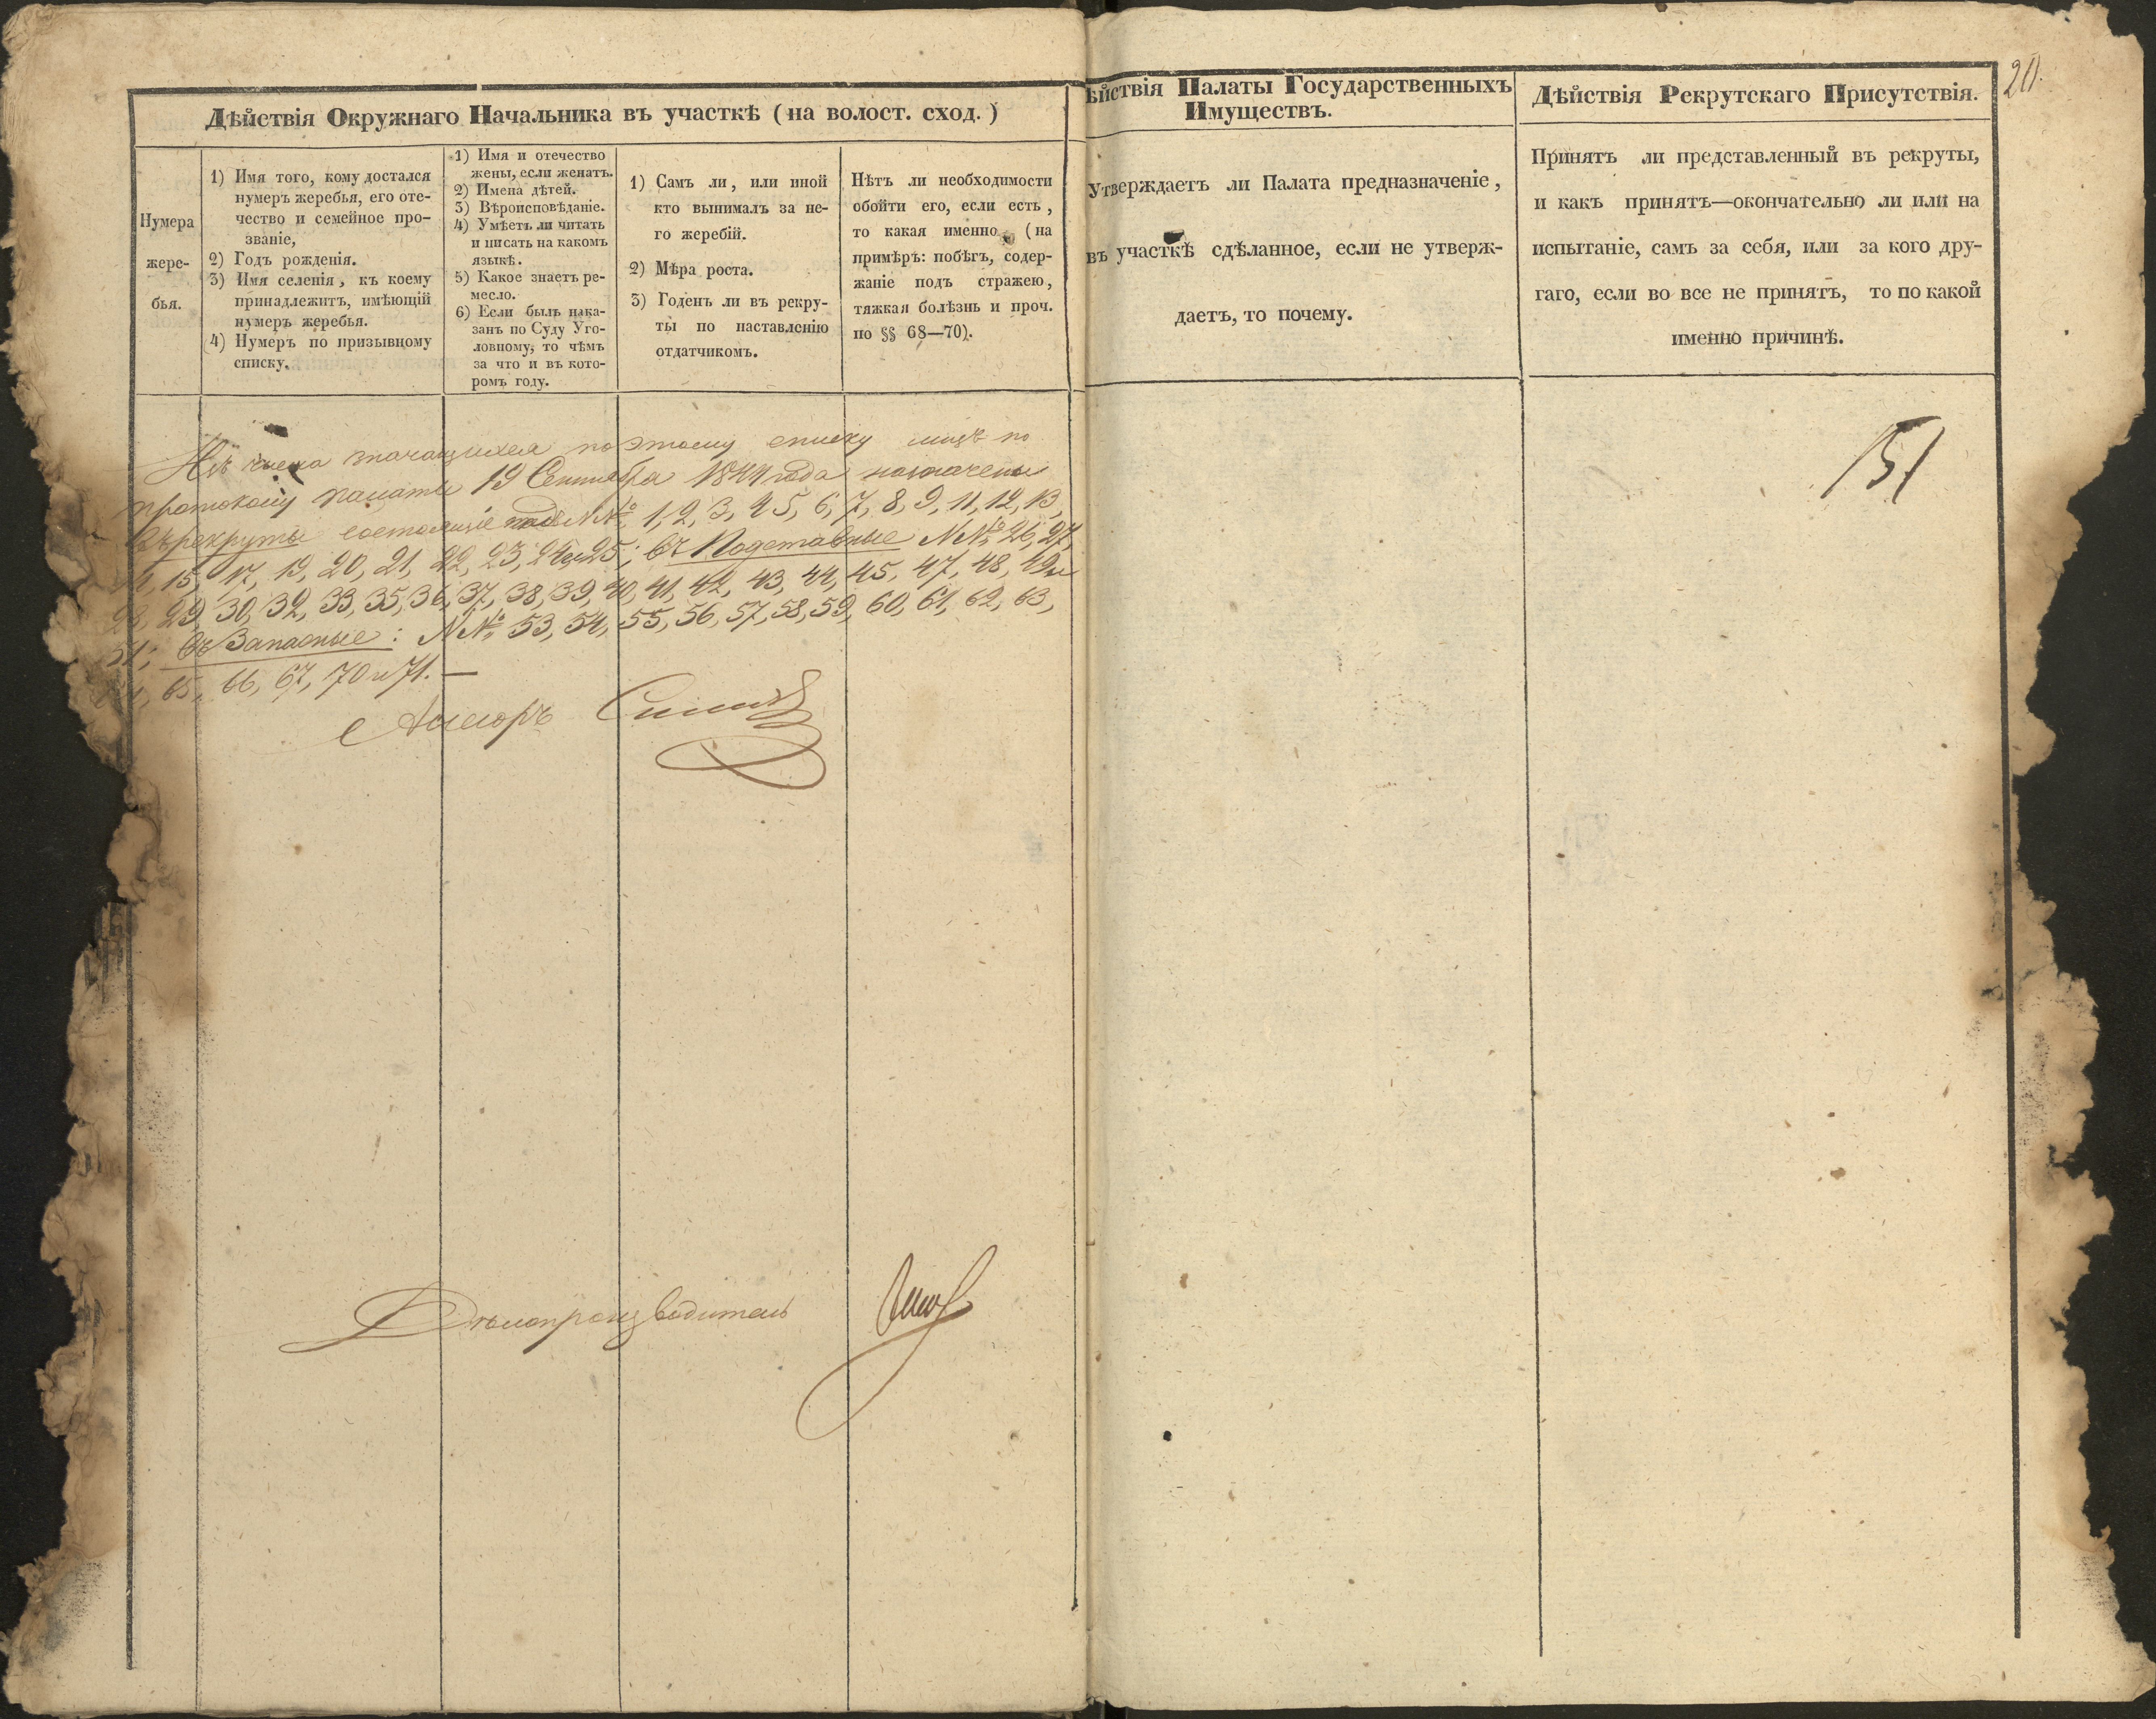 Дѣйствія Окружнаго Начальника въ участкѣ (на волост. сход.)
Нумера
жере-
бья.
1) Имя того, кому достался
нумеръ жеребья, его оте-
чество и семейное про-
званіе,
2) Годъ рожденія.
3) Имя селенія, къ коему
принадлежитъ, имѣющій
нумеръ жеребья.
4) Нумеръ по призывному
списку.
1) Имя и отечество
жены, если женатъ.
2) Имена дѣтей.
3) Вѣроисповѣданіе.
4) Умѣетъ ли читать
и писать на какомъ
языкѣ.
5) Какое знаетъ ре-
месло.
6) Если былъ нака-
занъ по Суду Уго-
ловному, то чѣмъ
за что и въ кото-
ромъ году.
1) Самъ ли, или иной
кто вынималъ за не-
го жеребій.
2) Мѣра роста.
3) Годенъ ли въ рекру-
ты по наставленію
отдатчикомъ.
Нѣтъ ли необходимости
обойти его, если есть,
то какая именно (на
примѣръ: побѣгъ, содер-
жаніе подъ стражею,
тяжкая болѣзнь и проч.
по §§ 68—70).
Изъ числа значащихся по этому списку лицъ по
протоколу палаты 19 Сентября 1844 года назначены
въ рекруты состоящіе под NN: 1, 2, 3, 4, 5, 6, 7, 8, 9, 11, 12, 13,
14, 15, 17, 19, 20, 21, 22, 23, 24 и 25; въ Подставные NN: 26, 27,
28, 29, 30, 32, 33, 35, 36, 37, 38, 39, 40, 41, 42, 43, 44, 45, 47, 48, 49 и
51; въ Запасные: NN: 53, 54, 55, 56, 57, 58, 59, 60, 61, 62, 63,
64, 65, 66, 67, 70 и 71. —
Асессоръ
Дѣлопроизводитель
ѣйствія Палаты Государственныхъ
Имуществъ.
Утверждаетъ ли Палата предназначеніе,
въ участкѣ сдѣланное, если не утверж-
даетъ, то почему.
Дѣйствія Рекрутскаго Присутствія.
Принятъ ли представленный въ рекруты,
и какъ принятъ—окончательно ли или на
испытаніе, самъ за себя, или за кого дру-
гаго, если во все не принятъ, то по какой
именно причинѣ.
151